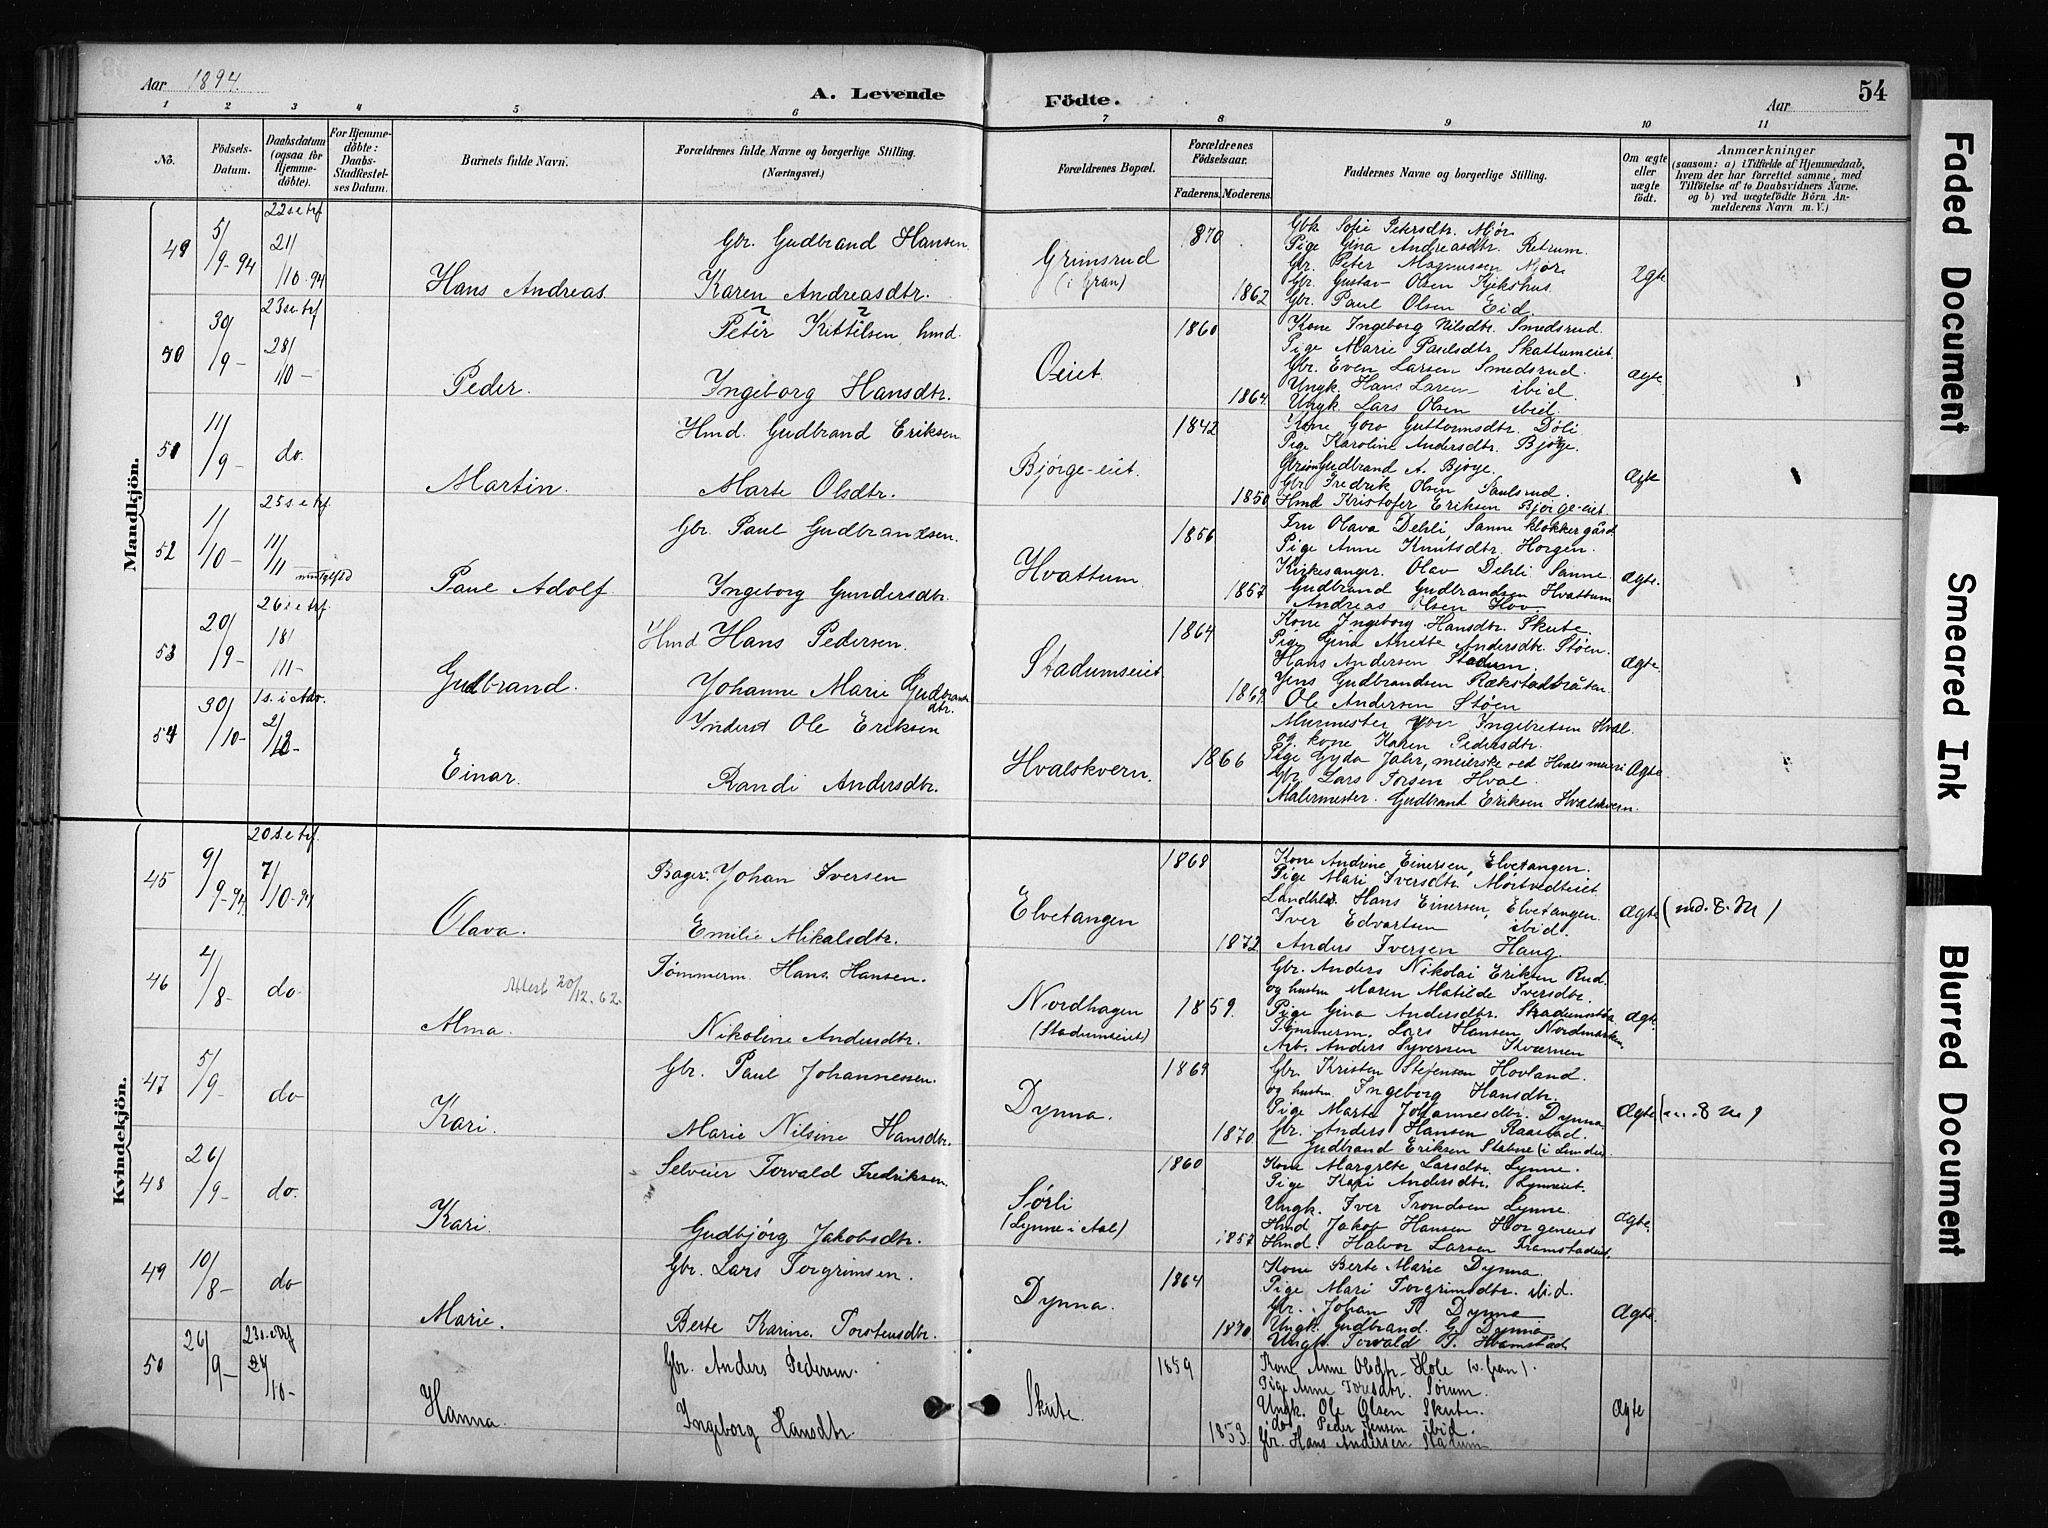 Aar 1894. A. Levende Födte. Aar 54
1 2 3 4 5 6 7 8 9 10 11
No. Födsels-Datum. Daabsdatum (ogsaa for Hjemmedöbte). For Hjemmedöbte: Daabs-Stadfæstelses Datum. Barnets fulde Navn. Forældrenes fulde Navne og borgerlige Stilling. (Næringsvei.) Forældrenes Bopæl. Forældrenes Födselsaar. Faderens. Moderens. Faddernes Navne og borgerlige Stilling. Om ægte eller uægte födt. Anmærkninger (saasom: a) i Tilfælde af Hjemmedaab, hvem der har forrettet samme, med Tilföielse af to Daabsvidners Navne, og b) ved uægtefödte Börn Anmelderens Navn m. V.)
Mandkjön.
49 5/9-94 22 s. e. trf. 21/10-94 Hans Andreas.
Gbr. Gudbrand Hansen
Karen Andreasdtr.
Grimsrud (i Gran) 1870 1862
Gbk Sofie Petersdtr. Mjør
Pige Gina Andreasdtr. Retrum.
Gbr. Peter Magnussen Mjør.
Gbr. Gustav Olsen Kjekshus.
Gbr. Paul Olsen Eid.
Ægte
50 30/9- 23 s. e. trf 28/10- Peder.
Peter Kittilsen hmd.
Ingeborg Hansdtr.
Oeiet 1860 1864.
Kone Ingeborg Nilsdtr. Smedsrud.
Pige Marie Paulsdtr. Skattumeiet.
Gbr. Even Larsen Smedsrud.
Ungk. Hans Larsen ibid.
Ungk Lars Olsen ibid.
Ægte
51 11/9- do. Martin.
Hmd. Gudbrand Eriksen
Marte Olsdtr.
Bjørge-eiet. 1842 1850
Kone Goro Guttormsdtr. Døli
Pige Karoline Andersdtr. Bjørge.
Gudbrand A. Bjørge.
Gbr. Fredrik Olsen Paulsrud.
Hmd Kristofer Eriksen Bjørge-eiet
Ægte
52 1/10- 25 s. e. trf. 11/11 Paul Adolf
Gbr. Paul Gudbrandsen.
Ingeborg Gundersdtr.
Hvattum 1856 1857
Fru Olava Dehli Sanne klokkergård
Pige Anne Knutsdtr. Horgen.
Kirkesanger. Olav Dehli Sanne
Gudbrand Gudbrandsen Hvattum
Andreas Olsen Hov.
Ægte.
53 20/9- 26 s. e. trf 18/11- Gudbrand.
Hmd Hans Pedersen.
Johanne Marie Gudbrandsdtr.
Stadumseiet 1864 1869.
Kone Ingeborg Hansdtr. Skute.
Pige Gina Anette Andersdtr. Støen.
Hans Andersen Stadum.
Jens Gudbrandsen Rækstadbråten.
Ole Andersen Støen
Ægte.
54 30/10- 1 s. i Adv. 2/12- Einar.
Inderst Ole Eriksen
Randi Andersdtr.
Hvalskvern. 1866
Murmester Iver Ingebretsen Hval.
og kone Karen Pedersdtr.
Pige Gyda Jahr, meierske ved Hvals meieri
Gbr. Lars Torsen Hval.
Malermester. Gudbrand Eriksen Hvalskvern.
Ægte.
Kvindekjön.
45 9/9-94. 20 s. e. trf. 7/10-94 Olava.
Bager. Johan Iversen
Emilie Mikalsdtr.
Elvetangen 1868 1872
Kone Andrine Einersen, Elvetangen.
Pige Mari Iversdtr. Mortvedteiet
Landhdl. Hans Einersen, Elvetangen.
Iver Edvartsen ibid.
Anders Iversen Haug.
Ægte
46 4/8- do Alma.
Attest 20/12.62.
Tømmerm. Hans Hansen.
Nikoline Andersdtr.
Nordhagen (Stadumseiet) 1859.
Gbr. Anders Nikolai Eriksen Rud.
og hustru Maren Matilde Iversdtr.
Pige Gina Andersdtr. Stadumstøa
Tømmerm. Lars Hansen Nordmarken,
Arb. Anders Syversen Kværnen
Ægte.
47 5/9- do Kari.
Gbr. Paul Johannessen.
Marie Nilsine Hansdtr.
Dynna. 1869 1870
Gbr. Kristen Stefensen Hovland.
og hustru Ingeborg Hansdtr.
Pige Marte Johannesdtr. Dynna
Gbr. Anders Hansen Raastad.
Gudbrand Eriksen Stabne (i Lunder)
Ægte
48 26/9- do. Kari.
Selveier Torvald Fredriksen.
Gudbjørg Jakobsdtr.
Sørli (Lynne i Aal) 1860 1857
Kone Margrete Larsdtr. Lynne.
Pige Kari Andersdtr. Lynneiet.
Ungk. Iver Trondsen Lynne.
Hmd Jakop Hansen Horgeneiet
Hmd. Halvor Larsen Framstadeiet.
Ægte.
49 10/8- do Marie.
Gbr. Lars Torgrimsen.
Berte Karine. Torstensdtr.
Dynna. 1864 1870
Kone Berte Marie Dynna.
Pige Mari Torgrimsdtr. ibid.
Gbr. Johan P. Dynna
Ungk. Gudbrand. G. Dynna
Ungk. Torvald T. Hvamstad
Ægte.
50 26/9- 23 s. e. trf 28/10- Hanna.
Gbr. Anders Pedersen.
Ingeborg Hansdtr.
Skute. 1859 1853.
Kone Anne Olsdtr. Hole (v. Gran).
Pige Anne Toresdtr. Sørum.
Ungk. Ole Olsen Skute
do Peder Jensen ibid.
Gbr. Hans Andersen Stadum
Ægte
Faded Document
Smeared Ink
Blurred Document